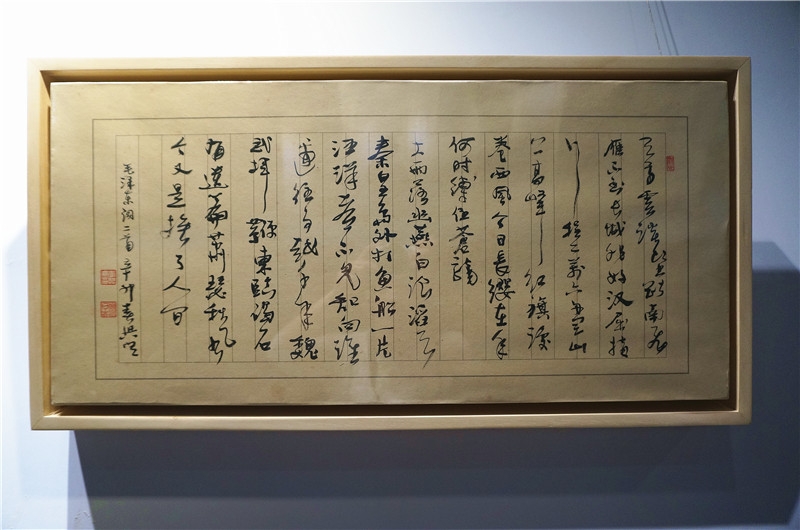 天高雲淡望断南飛
雁不到長城非好汉屈指
行程二萬六盤山
上高峰紅旗漫
卷西風今日長纓在手
何時縛住蒼龍
大雨落幽燕白浪滔天
秦皇島外打魚船一片
汪洋都不見知向誰
邊往事越千年魏
武揮鞭東臨碣石
有遺篇蕭瑟秋風
今又是換了人间
毛泽東词二首 辛卯春興